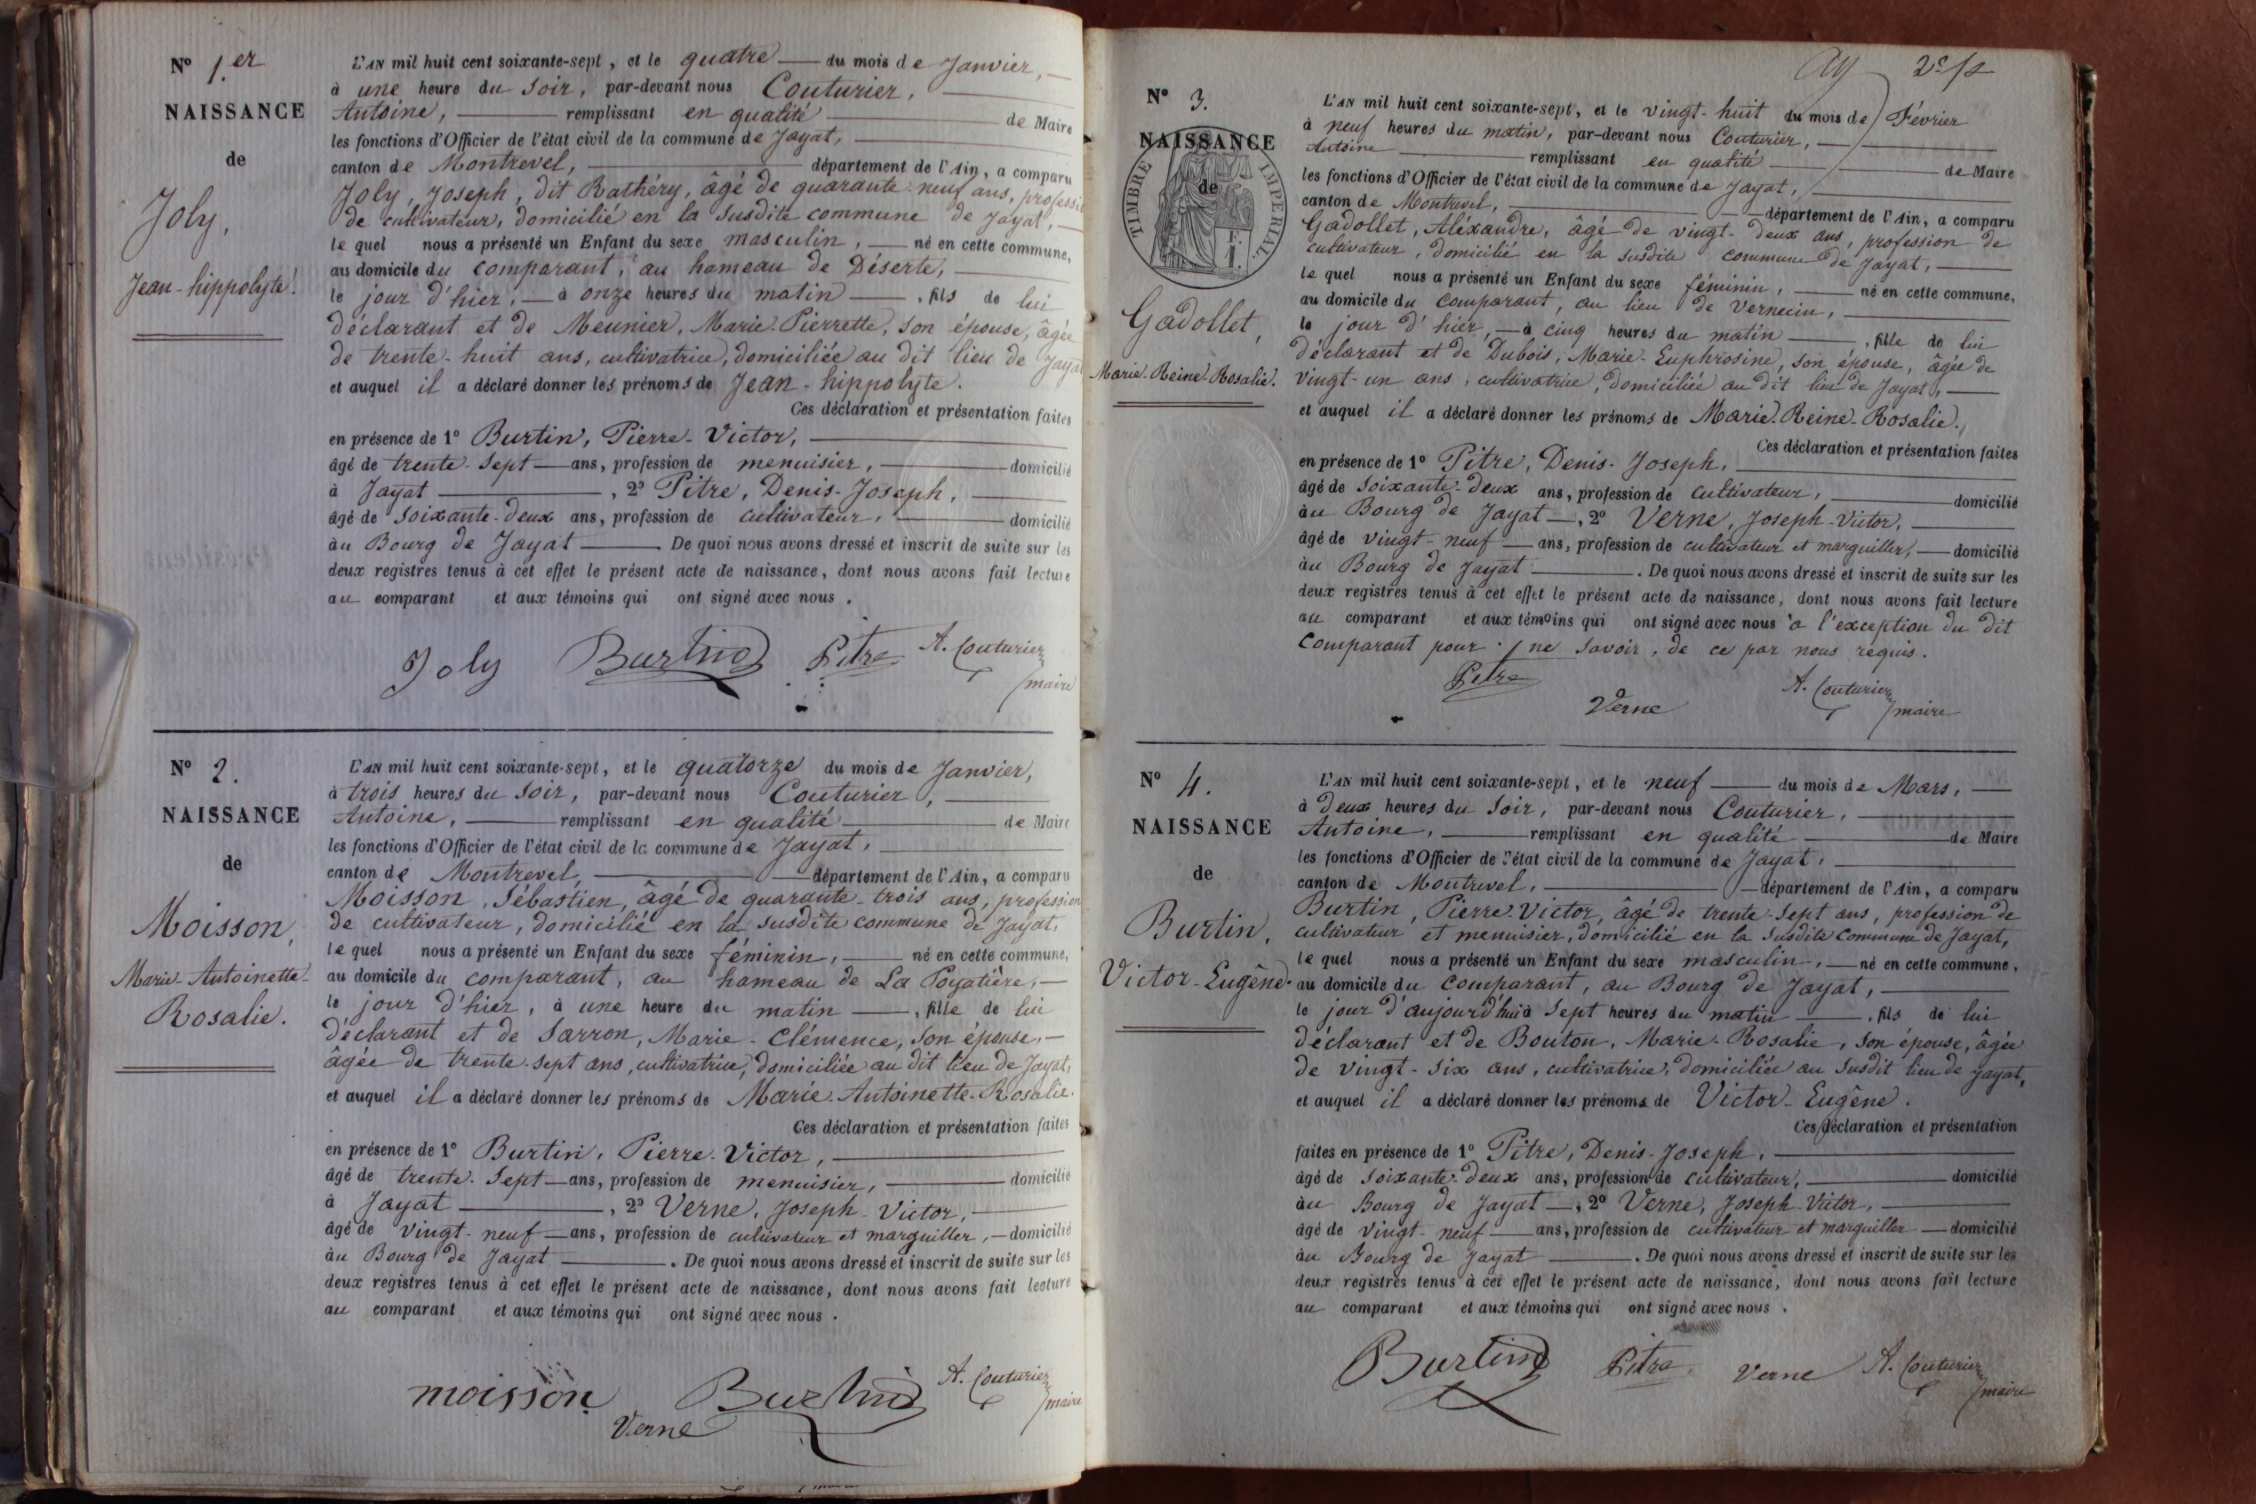 N° 1.er
NAISSANCE
de
Joly,
Jean-hippolyte.
L'AN mil huit cent soixante-sept, et le quatre du mois de Janvier,
à une heure du Soir, par-devant nous Couturier,
Antoine, remplissant en qualité de Maire
les fonctions d'Officier de l'état civil de la commune de Jayat,
canton de Montrevel, département de l'Ain, a comparu
Joly, Joseph, dit Rathéry, âgé de quarante-neuf ans, profession
de cultivateur, domicilié en la susdite commune de Jayat,
lequel nous a présenté un Enfant du sexe masculin, né en cette commune,
au domicile du comparant, au hameau de Déserte,
le jour d'hier, à onze heures du matin, fils de lui
déclarant et de Meunier, Marie Pierrette, son épouse, âgée
de trente-huit ans, cultivatrice, domiciliée au dit lieu de Jayat
et auquel il a déclaré donner les prénoms de Jean-hippolyte.
Ces déclaration et présentation faites
en présence de 1° Burtin, Pierre-Victor,
âgé de trente-Sept ans, profession de menuisier, domicilié
à Jayat, 2° Pitre, Denis-Joseph,
âgé de Soixante-deux ans, profession de cultivateur, domicilié
au Bourg de Jayat De quoi nous avons dressé et inscrit de suite sur les
deux registres tenus à cet effet le présent acte de naissance, dont nous avons fait lecture
au comparant et aux témoins qui ont signé avec nous.
Joly Burtin Pitre A. Couturier
maire
N° 2.
NAISSANCE
de
Moisson,
Marie-Antoinette-
Rosalie.
L'AN mil huit cent soixante-sept, et le quatorze du mois de Janvier,
à trois heures du Soir, par-devant nous Couturier,
Antoine, remplissant en qualité de Maire
les fonctions d'Officier de l'état civil de la commune de Jayat,
canton de Montrevel, département de l'Ain, a comparu
Moisson, Sébastien, âgé de quarante-trois ans, profession
de cultivateur, domicilié en la susdite commune de Jayat,
lequel nous a présenté un Enfant du sexe féminin, né en cette commune,
au domicile du comparant, au hameau de La Poyatière,
le jour d'hier, à une heure du matin, fille de lui
déclarant et de Sarron, Marie-Clémence, son épouse,
âgée de trente-sept ans, cultivatrice, domiciliée au dit lieu de Jayat,
et auquel il a déclaré donner les prénoms de Marie-Antoinette-Rosalie.
Ces déclaration et présentation faites
en présence de 1° Burtin, Pierre-Victor,
âgé de trente-Sept ans, profession de menuisier, domicilié
à Jayat, 2° Verne, Joseph-Victor,
âgé de vingt-neuf ans, profession de cultivateur et marguiller, domicilié
au Bourg de Jayat. De quoi nous avons dressé et inscrit de suite sur les
deux registres tenus à cet effet le présent acte de naissance, dont nous avons fait lecture
au comparant et aux témoins qui ont signé avec nous.
moisson Burtin A. Couturier
Verne maire
2e f
N° 3.
NAISSANCE
de
TIMBRE IMPERIAL
Gadollet,
Marie-Reine-Rosalie.
L'AN mil huit cent soixante-sept, et le vingt-huit du mois de Février
à neuf heures du matin, par-devant nous Couturier,
Antoine remplissant en qualité de Maire
les fonctions d'Officier de l'état civil de la commune de Jayat,
canton de Montrevel, département de l'Ain, a comparu
Gadollet, Aléxandre, âgé de vingt-deux ans, profession de
cultivateur, domicilié en la susdite commune de Jayat,
lequel nous a présenté un Enfant du sexe féminin, né en cette commune,
au domicile du comparant, au lieu de Vernecin,
le jour d'hier, à cinq heures du matin, fille de lui
déclarant et de Dubois, Marie-Euphrosine, son épouse, âgée de
vingt-un ans, cultivatrice, domiciliée au dit lieu de Jayat,
et auquel il a déclaré donner les prénoms de Marie-Reine-Rosalie.
Ces déclaration et présentation faites
en présence de 1° Pitre, Denis-Joseph,
âgé de Soixante-deux ans, profession de cultivateur, domicilié
au Bourg de Jayat, 2° Verne, Joseph-Victor,
âgé de vingt-neuf ans, profession de cultivateur et marguiller, domicilié
au Bourg de Jayat. De quoi nous avons dressé et inscrit de suite sur les
deux registres tenus à cet effet le présent acte de naissance, dont nous avons fait lecture
au comparant et aux témoins qui ont signé avec nous à l'exception du dit
comparant pour ne savoir, de ce par nous requis.
Pitre Verne A. Couturier
maire
N° 4.
NAISSANCE
de
Burtin,
Victor-Eugêne.
L'AN mil huit cent soixante-sept, et le neuf du mois de Mars,
à deux heures du Soir, par-devant nous Couturier,
Antoine, remplissant en qualité de Maire
les fonctions d'Officier de l'état civil de la commune de Jayat,
canton de Montrevel, département de l'Ain, a comparu
Burtin, Pierre-Victor, âgé de trente-Sept ans, profession de
cultivateur et menuisier, domicilié en la susdite commune de Jayat,
lequel nous a présenté un Enfant du sexe masculin, né en cette commune,
au domicile du comparant, au Bourg de Jayat,
le jour d'aujourd'hui à Sept heures du matin, fils de lui
déclarant et de Bouton, Marie-Rosalie, son épouse, âgée
de vingt-six ans, cultivatrice, domiciliée au susdit lieu de Jayat,
et auquel il a déclaré donner les prénoms de Victor-Eugêne.
Ces déclaration et présentation
faites en présence de 1° Pitre, Denis-Joseph,
âgé de Soixante-deux ans, profession de cultivateur, domicilié
au Bourg de Jayat, 2° Verne, Joseph-Victor,
âgé de vingt-neuf ans, profession de cultivateur et marguiller domicilié
au Bourg de Jayat. De quoi nous avons dressé et inscrit de suite sur les
deux registres tenus à cet effet le présent acte de naissance, dont nous avons fait lecture
au comparant et aux témoins qui ont signé avec nous.
Burtin Pitre Verne A. Couturier
maire